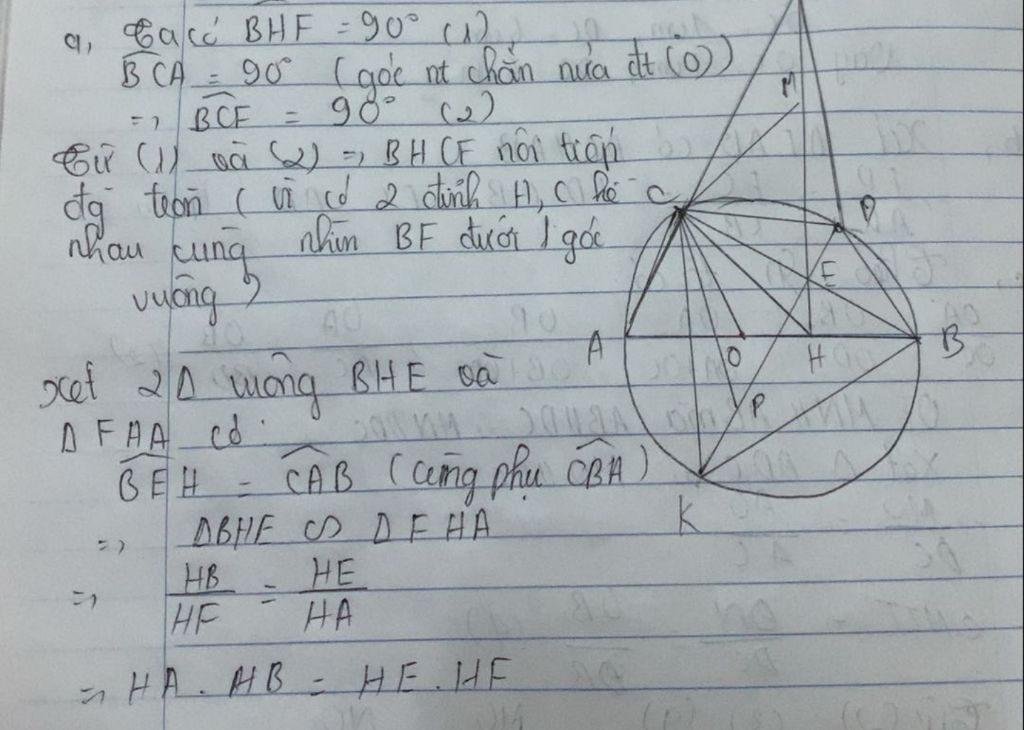 a, Ta có BHF = 90° (1)
BCA = 90° (góc nt chắn nửa đt (O))
=> BCF = 90° (2)
Từ (1) và (2) => BHCF nội tiếp
đg tròn ( vì có 2 đỉnh H, C kề
nhau cùng nhìn BF dưới 1 góc
vuông )
Xét 2Δ vuông BHE và
Δ FHA có:
BEH = CAB (cùng phụ CBA)
=> ΔBHE ∽ ΔFHA
=> HB/HF = HE/HA
=> HA . HB = HE . HF
M
C
D
E
A
O
H
B
P
K